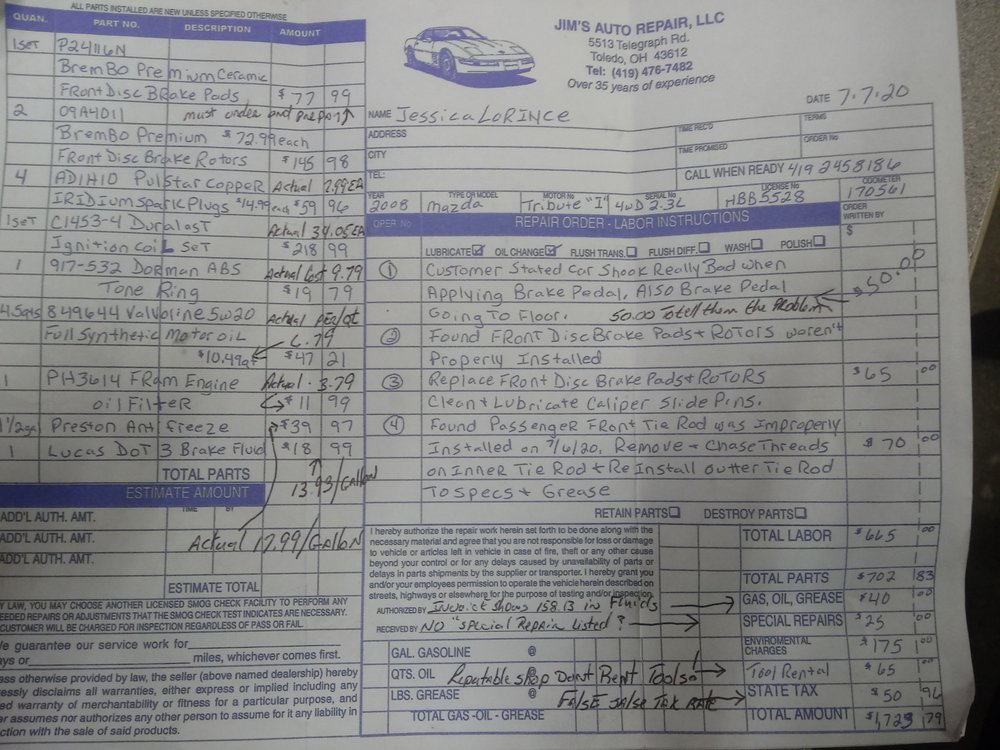 ALL PARTS INSTALLED ARE NEW UNLESS SPECIFIED OTHERWISE
QUAN. PART NO. DESCRIPTION AMOUNT
1 SET P24116N
BremBo Premium Ceramic
Front Disc Brake Pads $77 99
2 09A4011 must order and PrePay
BremBo Premium $72.99 each
Front Disc Brake Rotors $145 98
4 AD1H10 Pulstar Copper Actual 7.99EA
IRIDium Spark Plugs $14.99 each $59 96
1 SET C1453-4 DuralasT Actual 34.05EA
Ignition Coil Set $218 99
1 917-532 Dorman ABS Actual Cost 9.79
Tone Ring $19 79
4.5qts 849644 Valvoline 5w20 Actual Per/qt
Full Synthetic Motor oil 6.79
$10.49qt $47 21
1 PH3614 FRam Engine Actual 3.79
oil Filter $11 99
1 1/2gal Preston Anti Freeze $39 97
1 Lucas DoT 3 Brake Fluid $18 99
TOTAL PARTS 13.93/Gallon
ESTIMATE AMOUNT TIME BY
ADD'L AUTH. AMT.
ADD'L AUTH. AMT. Actual 17.99/Gallon
ADD'L AUTH. AMT.
ESTIMATE TOTAL
LAW, YOU MAY CHOOSE ANOTHER LICENSED SMOG CHECK FACILITY TO PERFORM ANY
REPAIRS OR ADJUSTMENTS THAT THE SMOG CHECK TEST INDICATES ARE NECESSARY.
CUSTOMER WILL BE CHARGED FOR INSPECTION REGARDLESS OF PASS OR FAIL.
guarantee our service work for
or miles, whichever comes first.
otherwise provided by law, the seller (above named dealership) hereby
disclaims all warranties, either express or implied including any
warranty of merchantability or fitness for a particular purpose, and
assumes nor authorizes any other person to assume for it any liability in
with the sale of said products.
JIM'S AUTO REPAIR, LLC
5513 Telegraph Rd.
Toledo, OH 43612
Tel: (419) 476-7482
Over 35 years of experience
DATE 7.7.20
NAME Jessica LoRINce
ADDRESS TIME REC'D TERMS
CITY TIME PROMISED ORDER No
TEL: CALL WHEN READY 419 2458186
YEAR TYPE OR MODEL MOTOR No SERIAL No LICENSE No ODOMETER
2008 Mazda Tribute "I" 4WD 2.3L HBB5528 170561
OPER No REPAIR ORDER - LABOR INSTRUCTIONS ORDER WRITTEN BY
LUBRICATE OIL CHANGE FLUSH TRANS. FLUSH DIFF. WASH POLISH $
1 Customer Stated Car Shook Really Bad when
Applying Brake Pedal, Also Brake Pedal $50.00
Going To Floor. 50.00 To tell them the Problem
2 Found Front Disc Brake Pads + Rotors weren't
Properly Installed
3 Replace Front Disc Brake Pads + RoToRS $65 00
Clean + Lubricate Caliper Slide Pins.
4 Found Passenger Front Tie Rod was Improperly
Installed on 7/6/20. Remove + Chase Threads $70 00
on Inner Tie Rod + Re Install outter Tie Rod
To Specs + Grease
RETAIN PARTS DESTROY PARTS
I hereby authorize the repair work herein set forth to be done along with the
necessary material and agree that you are not responsible for loss or damage
to vehicle or articles left in vehicle in case of fire, theft or any other cause
beyond your control or for any delays caused by unavailability of parts or
delays in parts shipments by the supplier or transporter. I hereby grant you
and/or your employees permission to operate the vehicle herein described on
streets, highways or elsewhere for the purpose of testing and/or inspection.
AUTHORIZED BY Invoice shows 158.13 in Fluids
RECEIVED BY NO "Special Repair Listed?
TOTAL LABOR $665 00
TOTAL PARTS $702 83
GAS, OIL, GREASE $40 00
SPECIAL REPAIRS $25 00
ENVIROMENTAL CHARGES $175 00
GAL. GASOLINE @
QTS. OIL @ Reputable shop Dont Rent Tools! Tool Rental $65 00
LBS. GREASE @ False Sales Tax Rate STATE TAX $50 96
TOTAL GAS - OIL - GREASE TOTAL AMOUNT $1,723 79